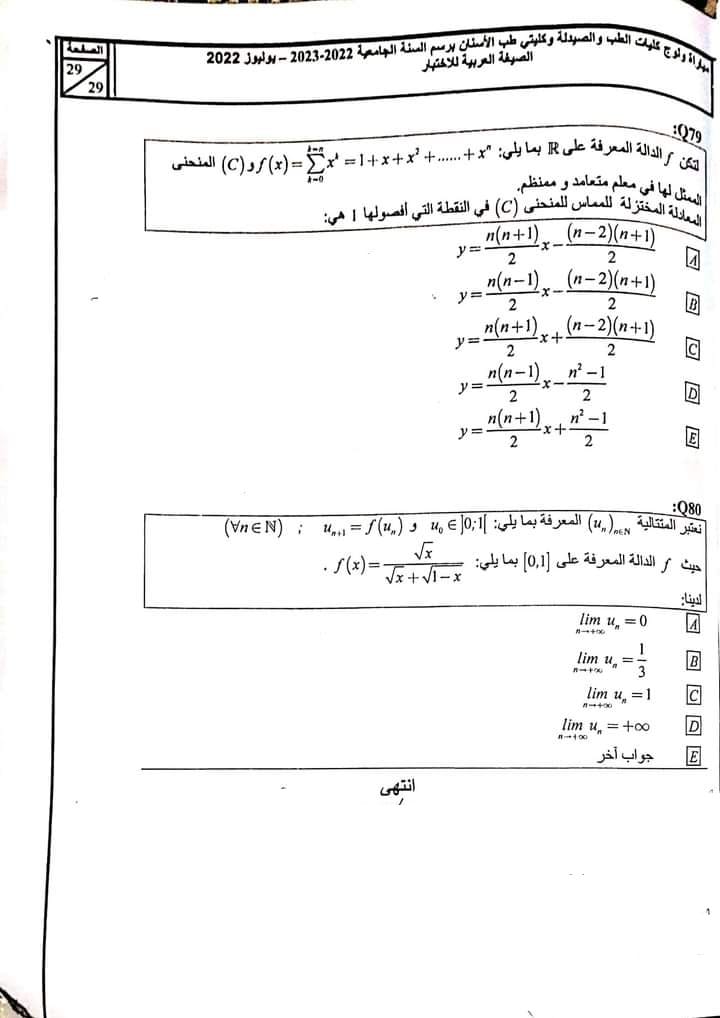 مباراة ولوج كليات الطب والصيدلة وكليتي طب الأسنان برسم السنة الجامعية 2022-2023 – يوليوز 2022
الصيغة العربية للاختبار
الصفحة
29
29
Q79:
لتكن f الدالة المعرفة على ℝ بما يلي: f(x) = ∑_{k=0}^{k=n} x^k = 1+x+x²+......+x^n و (C) المنحنى
الممثل لها في معلم متعامد و ممنظم.
المعادلة المختزلة للمماس للمنحنى (C) في النقطة التي أفصولها 1 هي:
A y = n(n+1)/2 x − (n−2)(n+1)/2
B y = n(n−1)/2 x − (n−2)(n+1)/2
C y = n(n+1)/2 x + (n−2)(n+1)/2
D y = n(n−1)/2 x − n²−1/2
E y = n(n+1)/2 x + n²−1/2
Q80:
نعتبر المتتالية (u_n)_{n∈ℕ} المعرفة بما يلي: u_0 ∈ ]0;1[ و u_{n+1} = f(u_n) ; (∀n∈ℕ)
حيث f الدالة المعرفة على [0,1] بما يلي: f(x) = √x/(√x+√1−x) .
لدينا:
A lim_{n→+∞} u_n = 0
B lim_{n→+∞} u_n = 1/3
C lim_{n→+∞} u_n = 1
D lim_{n→+∞} u_n = +∞
E جواب آخر
انتهى